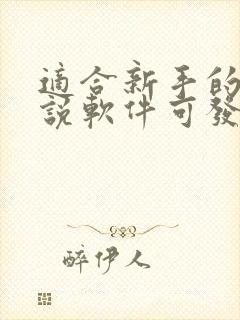 適合新手的
說軟件可發
醉伊人